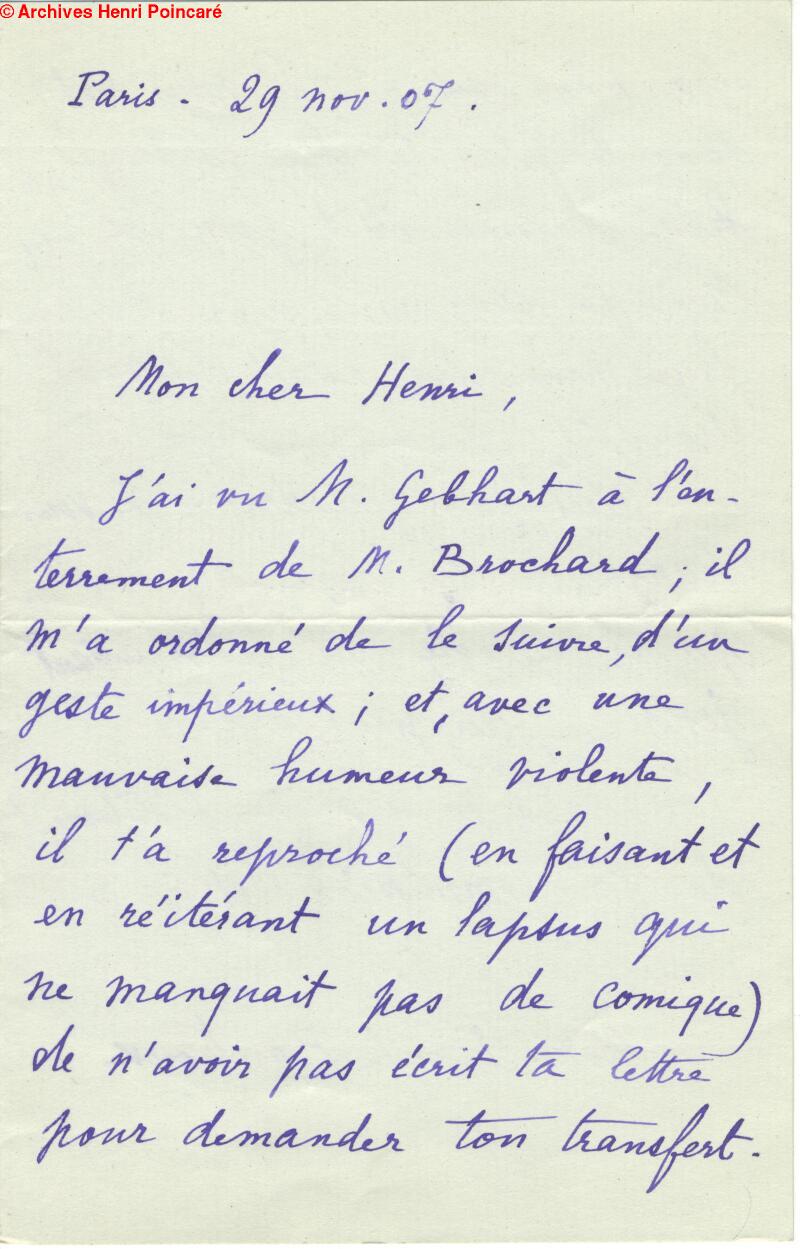 © Archives Henri Poincaré
Paris - 29 nov. 07.
Mon cher Henri,
J'ai vu M. Gebhart à l'en-
terrement de M. Brochard ; il
m'a ordonné de le suivre, d'un
geste impérieux ; et, avec une
mauvaise humeur violente,
il t'a reproché (en faisant et
en réitérant un lapsus qui
ne manquait pas de comique)
de n'avoir pas écrit ta lettre
pour demander ton transfert.